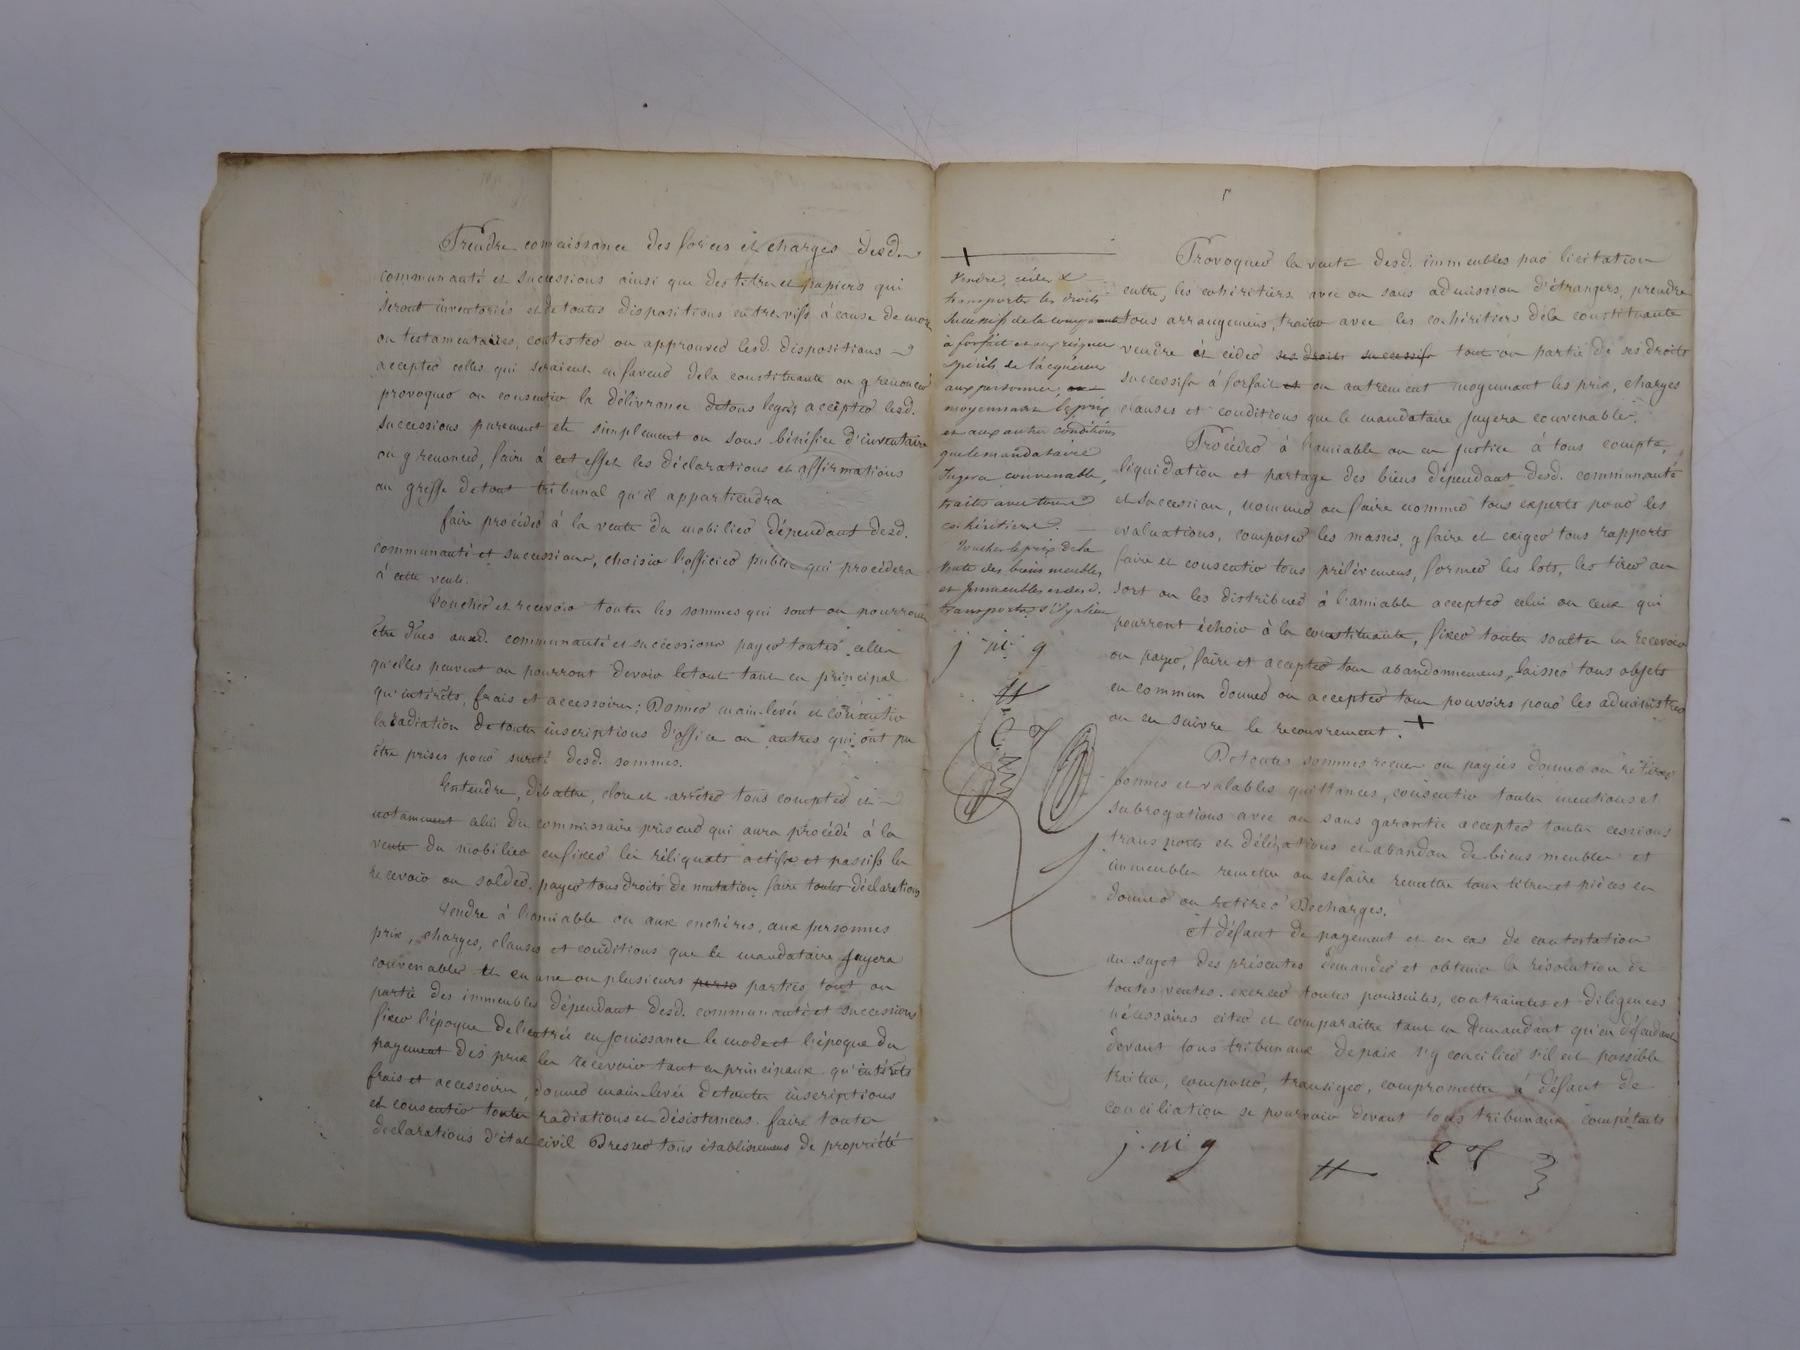 Prendre connaissance des forces et charges desd.
communauté et successions ainsi que des titres et papiers qui
seront inventoriés et de toutes dispositions entrevifs à cause de mort
ou testamentaires, contester ou approuver lesd. dispositions
accepter celles qui seraient en faveur de la constituante ou y renoncer
provoquer ou consentir la délivrance de tous legs; accepter lesd.
successions purement et simplement ou sous bénéfice d'inventaire
ou y renoncer, faire à cet effet les déclarations et affirmations
au greffe de tout tribunal qu'il appartiendra
faire procéder à la vente du mobilier dépendant desd.
communauté et successions, choisir l'officier public qui procédera
à cette vente.
Toucher et recevoir toutes les sommes qui sont ou pourront
être dues auxd. communauté et successions payer toutes celles
qu'elles peuvent ou pourront devoir le tout tant en principal
qu'intérêts, frais et accessoires; Donner main-levée et consentir
la radiation de toutes inscriptions d'office ou autres qui ont pu
être prises pour sureté desd. sommes.
Entendre, débattre, clore et arrêter tous comptes et
notamment celui du commissaire priseur qui aura procédé à la
vente du mobilier en fixer les reliquats actifs et passifs les
recevoir ou solder, payer tous droits de mutation faire toutes déclarations
Vendre à l'amiable ou aux enchères, aux personnes
prix, charges, clauses et conditions que le mandataire jugera
convenables et en une ou plusieurs perso parties, tout ou
partie des immeubles dépendant desd. communauté et successions
fixer l'époque de l'entrée en jouissance le mode et l'époque du
payement des prix les recevoir tant en principaux qu'intérêts
frais et accessoires, donner main-levée de toutes inscriptions
et consentir toutes radiations et désistemens. faire toutes
declarations d'état civil Dresser tous établissemens de propriété
Vendre, céder &
transporter les droits
successifs de la comparante
à forfait et aux risques
périls de l'acquéreur
aux personnes,
moyennant les prix
et aux autres conditions
que le mandataire
Jugera convenable,
traiter avec tous
cohéritiers.
Toucher le prix de la
vente des biens meubles
et Immeubles et desd.
transports s'il y a lieu
j. m g
Provoquer la vente desd. immeubles par licitation
entre les cohéritiers avec ou sans admission d'étrangers, prendre
tous arrangemens, traiter avec les cohéritiers de la constituante
vendre et céder ses droits successifs tout ou partie de ses droits
successifs à forfait et ou autrement moyennant les prix, charges
clauses et conditions que le mandataire jugera convenable.
Procéder à l'amiable ou en justice à tous compte,
liquidation et partage des biens dépendant desd. communauté
et succession, nommer ou faire nommer tous experts pour les
évaluations, composer les masses, y faire et exiger tous rapports
faire et consentir tous prélèvemens, former les lots, les tirer au
sort ou les distribuer à l'amiable accepter celui ou ceux qui
pourront échoir à la constituante, fixer toutes soultes les recevoir
ou payer, faire et accepter tous abandonnemens, laisser tous objets
en commun donner ou accepter tous pouvoirs pour les administrer
ou en suivre le recouvrement. +
De toutes sommes reçues ou payées donner ou retirer
bonnes et valables quittances, consentir toutes mentions et
subrogations avec ou sans garantie accepter toutes cessions
transports et délégations et abandon de biens meubles et
immeubles remettre ou se faire remettre tous titres et pièces en
donner ou retirer Decharges.
A défaut de payement et en cas de contestation
au sujet des présentes demander et obtenir la résolution de
toutes ventes. exercer toutes poursuites, contraintes et diligences
nécessaires citer et comparaître tant en demandant qu'en défendant
devant tous tribunaux de paix s'y concilier s'il est possible
traiter, composer, transiger, compromettre à défaut de
conciliation se pourvoir devant tous tribunaux compétents
j. m g